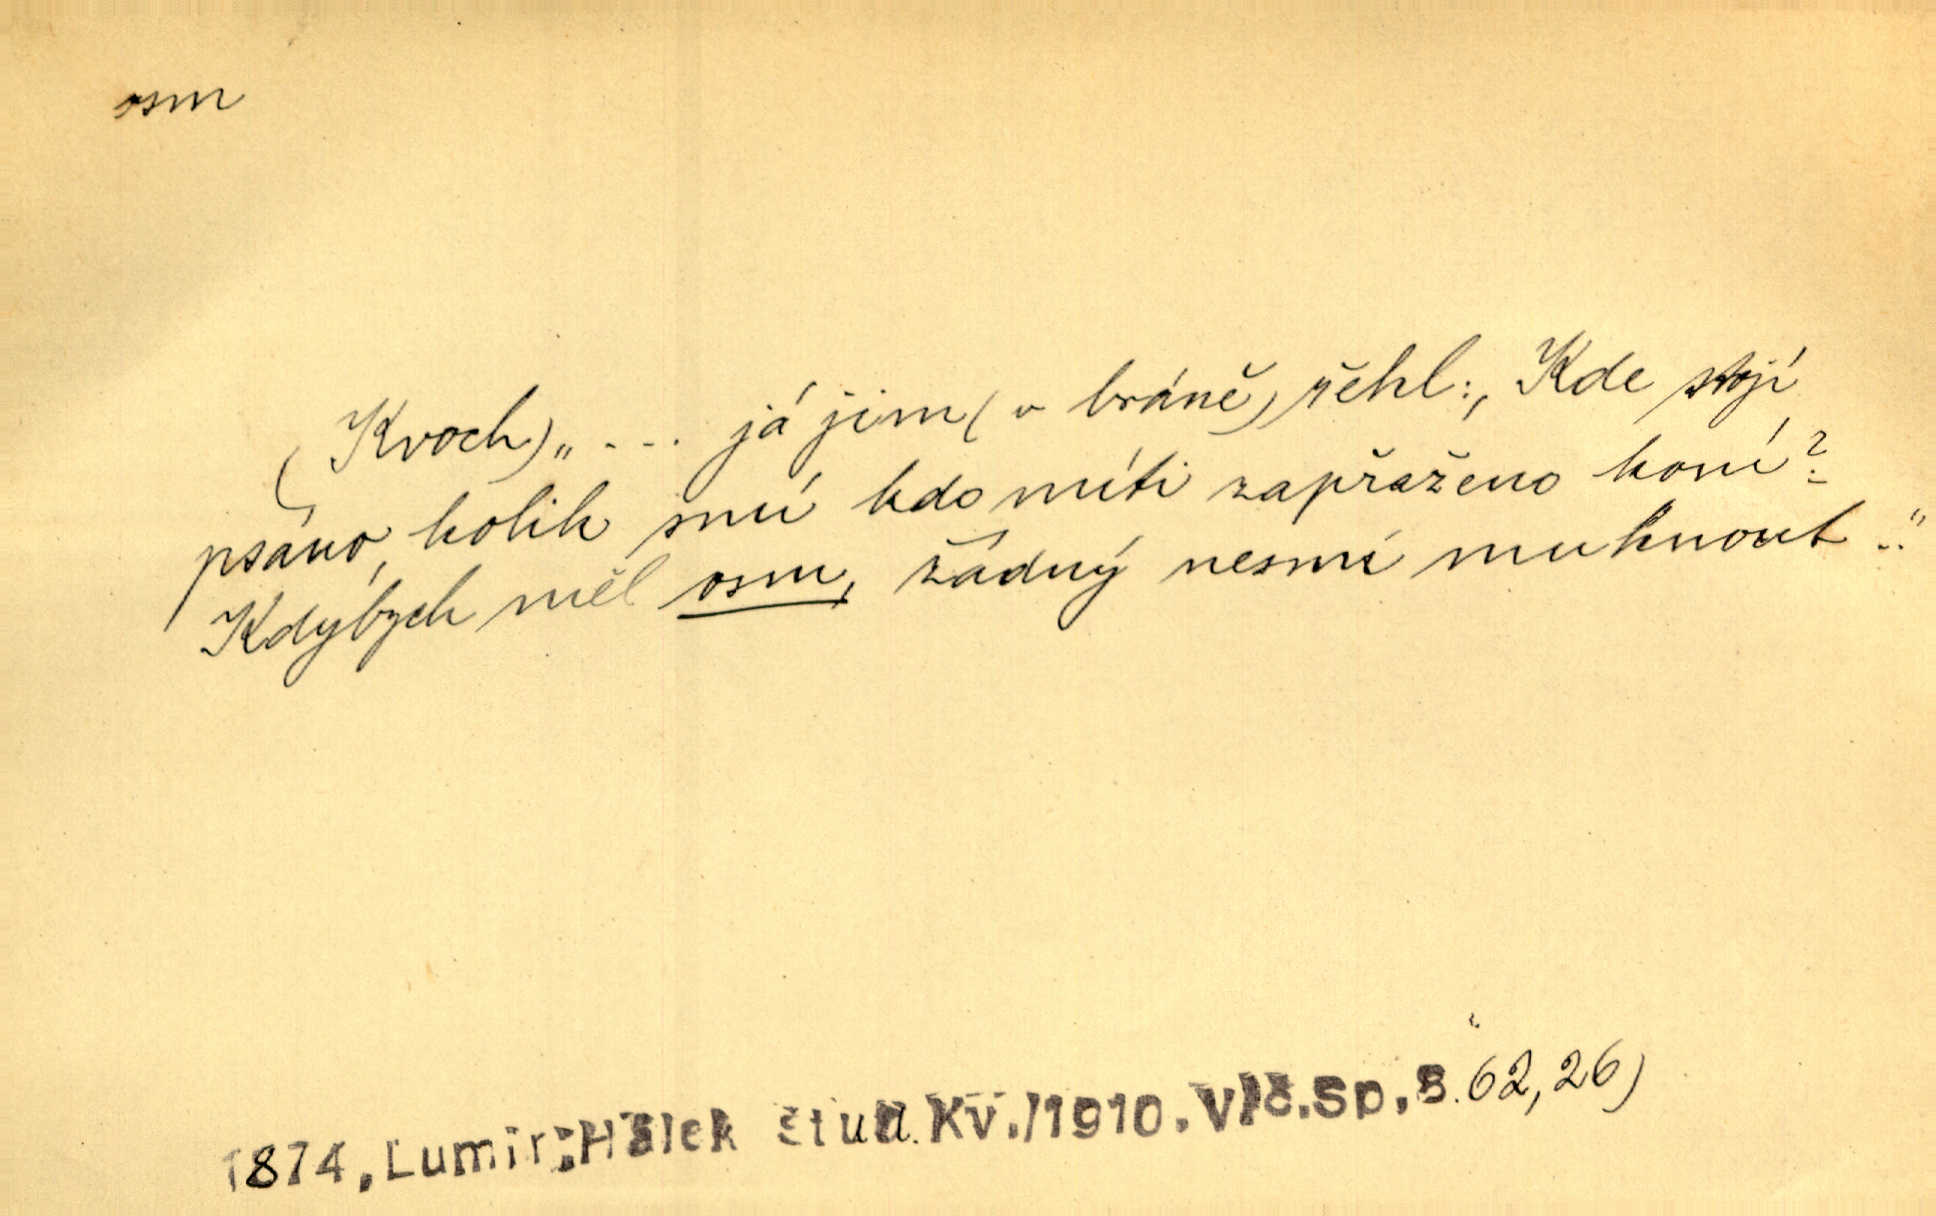 osm
(Kvoch) „ - - . já jim (v bráně) řehl: ‚Kde stojí
psáno, kolik smí kdo míti zapřaženo koní?
Kdybych měl osm, žádný nesmí muknout..“
1874, Lumír; Hálek Stud. Kv./1910. Vlč. Sp. 8. 62, 26)